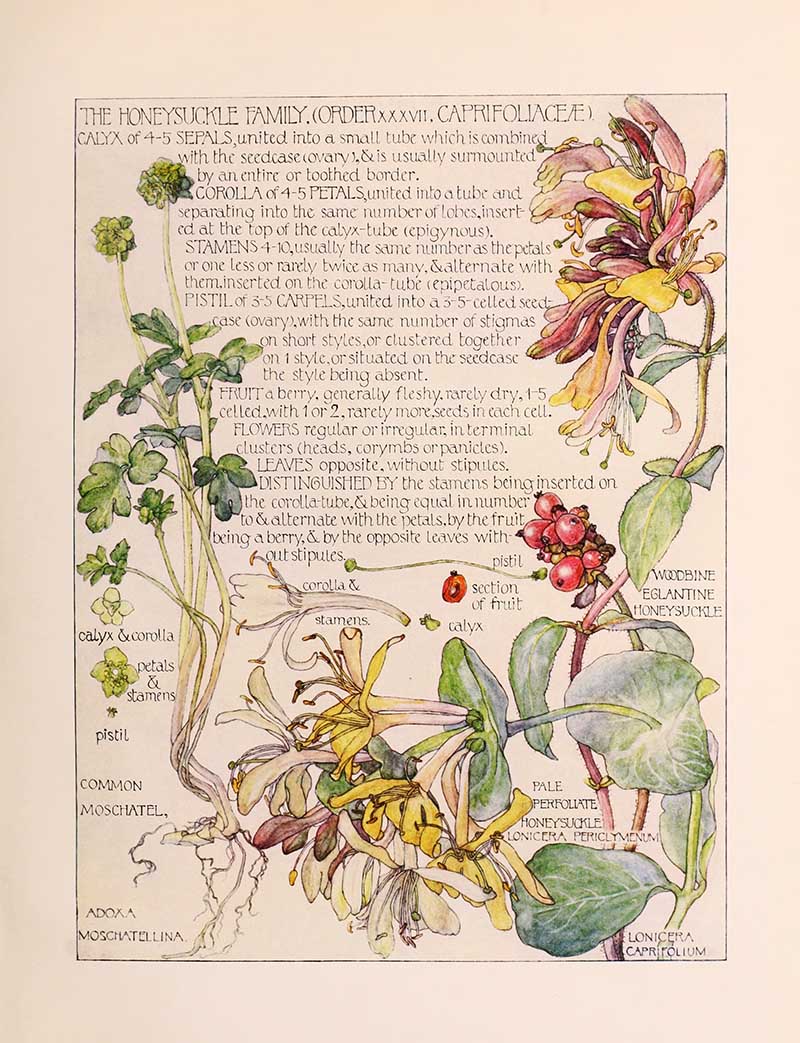 THE HONEYSUCKLE FAMILY. (ORDER XXXVII. CAPRIFOLIACEÆ).
CALYX of 4-5 SEPALS, united into a small tube which is combined
with the seedcase (ovary), & is usually surmounted
by an entire or toothed border.
COROLLA of 4-5 PETALS, united into a tube and
separating into the same number of lobes, insert-
ed at the top of the calyx-tube (epigynous).
STAMENS 4-10, usually the same number as the petals
or one less or rarely twice as many, & alternate with
them, inserted on the corolla-tube (epipetalous).
PISTIL of 3-5 CARPELS, united into a 3-5-celled seed-
case (ovary), with the same number of stigmas
on short styles, or clustered together
on 1 style, or situated on the seedcase
the style being absent.
FRUIT a berry, generally fleshy, rarely dry, 1-5
celled, with 1 or 2, rarely more, seeds in each cell.
FLOWERS regular or irregular, in terminal
clusters (heads, corymbs or panicles).
LEAVES opposite, without stipules.
DISTINGUISHED BY the stamens being inserted on
the corolla-tube, & being equal in number
to & alternate with the petals, by the fruit
being a berry, & by the opposite leaves with-
out stipules.
pistil
corolla &
stamens.
section
of fruit
calyx
WOODBINE
EGLANTINE
HONEYSUCKLE
calyx & corolla
petals
&
stamens
pistil
COMMON
MOSCHATEL,
ADOXA
MOSCHATELLINA.
PALE
PERFOLIATE
HONEYSUCKLE
LONICERA PERICLYMENUM
LONICERA
CAPRIFOLIUM